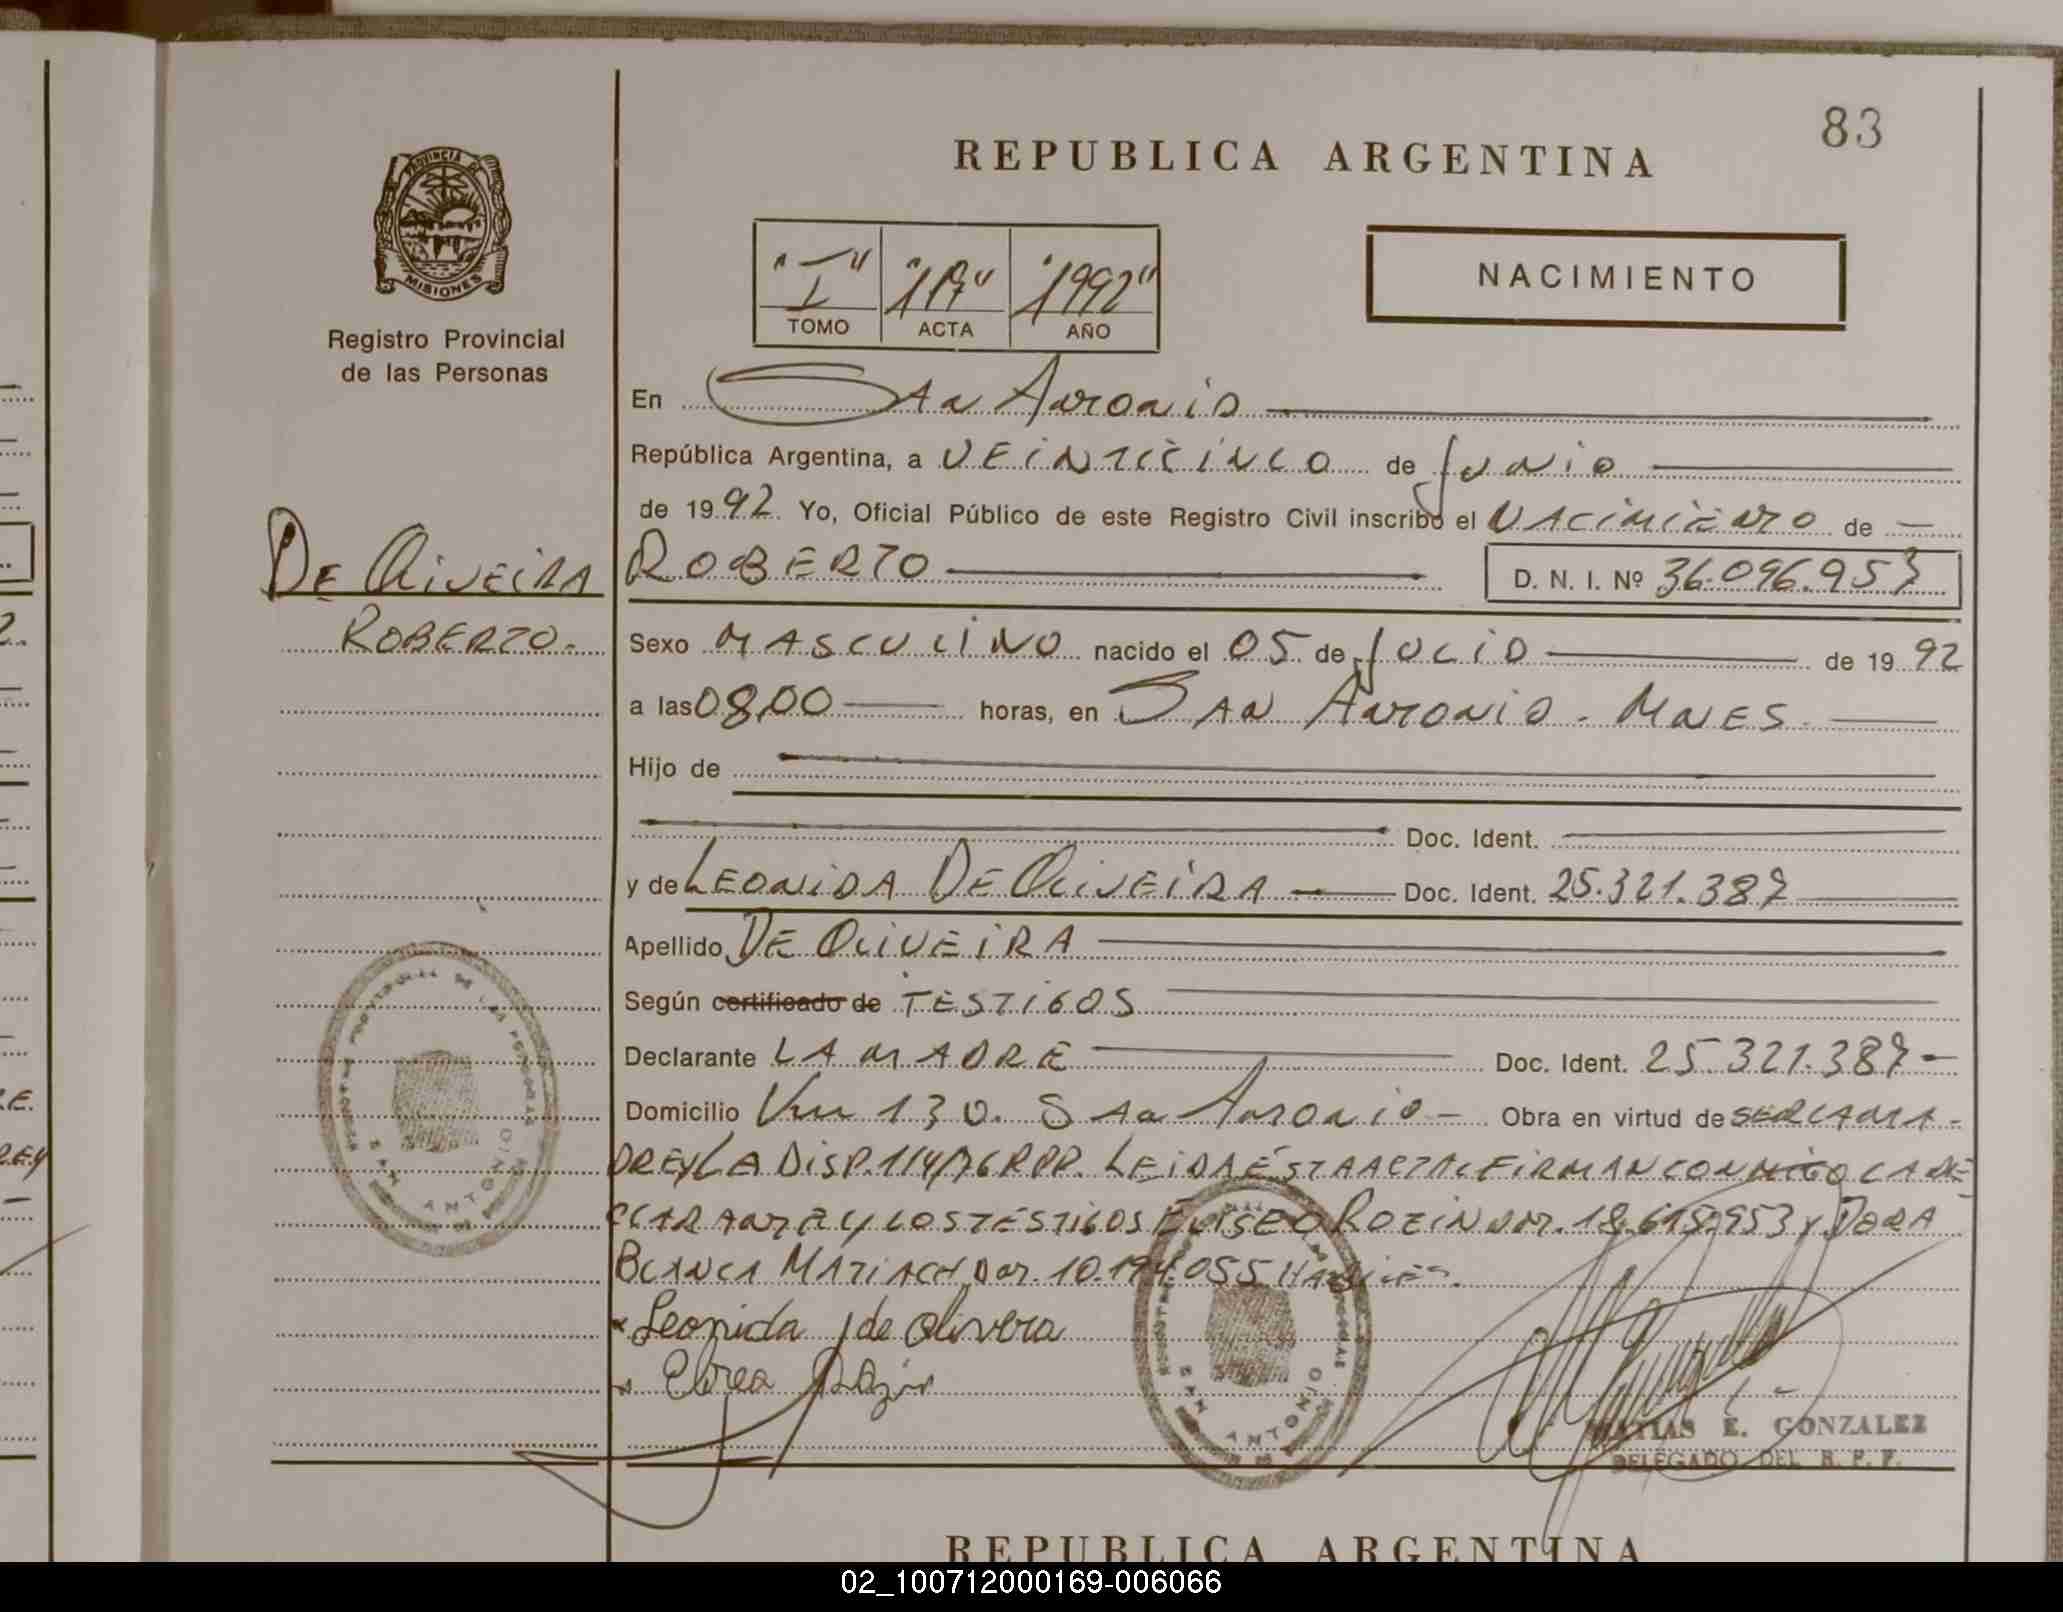 83
REPUBLICA ARGENTINA
PROVINCIA DE
MISIONES
Registro Provincial
de las Personas
"I" "117" "1992"
TOMO ACTA AÑO
NACIMIENTO
En San Antonio
República Argentina, a VEINTICINCO de Junio
de 1992 Yo, Oficial Público de este Registro Civil inscribo el NACIMIENTO de
DE OLIVEIRA
ROBERTO.
ROBERTO D. N. I. Nº 36.096.953
Sexo MASCULINO nacido el 05 de JULIO de 19 92
a las 08,00 horas, en SAN ANTONIO - MNES
Hijo de
Doc. Ident.
y de LEONIDA DE OLIVEIRA Doc. Ident. 25.321.387
Apellido DE OLIVEIRA
Según certificado de TESTIGOS
Declarante LA MADRE Doc. Ident. 25.321.387
Domicilio 130. SAN ANTONIO Obra en virtud de SER LA MA-
DRE Y LA DISP. 114/76 RPP. LEIDA ÉSTA ACTA LE FIRMAN CONMIGO LA DE
CLARANTE Y LOS TESTIGOS ELISEO DNI. 18.615.953 Y DORA
BLANCA DNI. 10.194.055 HABILES.
Leonida de Olivera
MATIAS E. GONZALEZ
DELEGADO DEL R. P. P.
SAN ANTONIO
SAN ANTONIO
REPUBLICA ARGENTINA
02_100712000169-006066